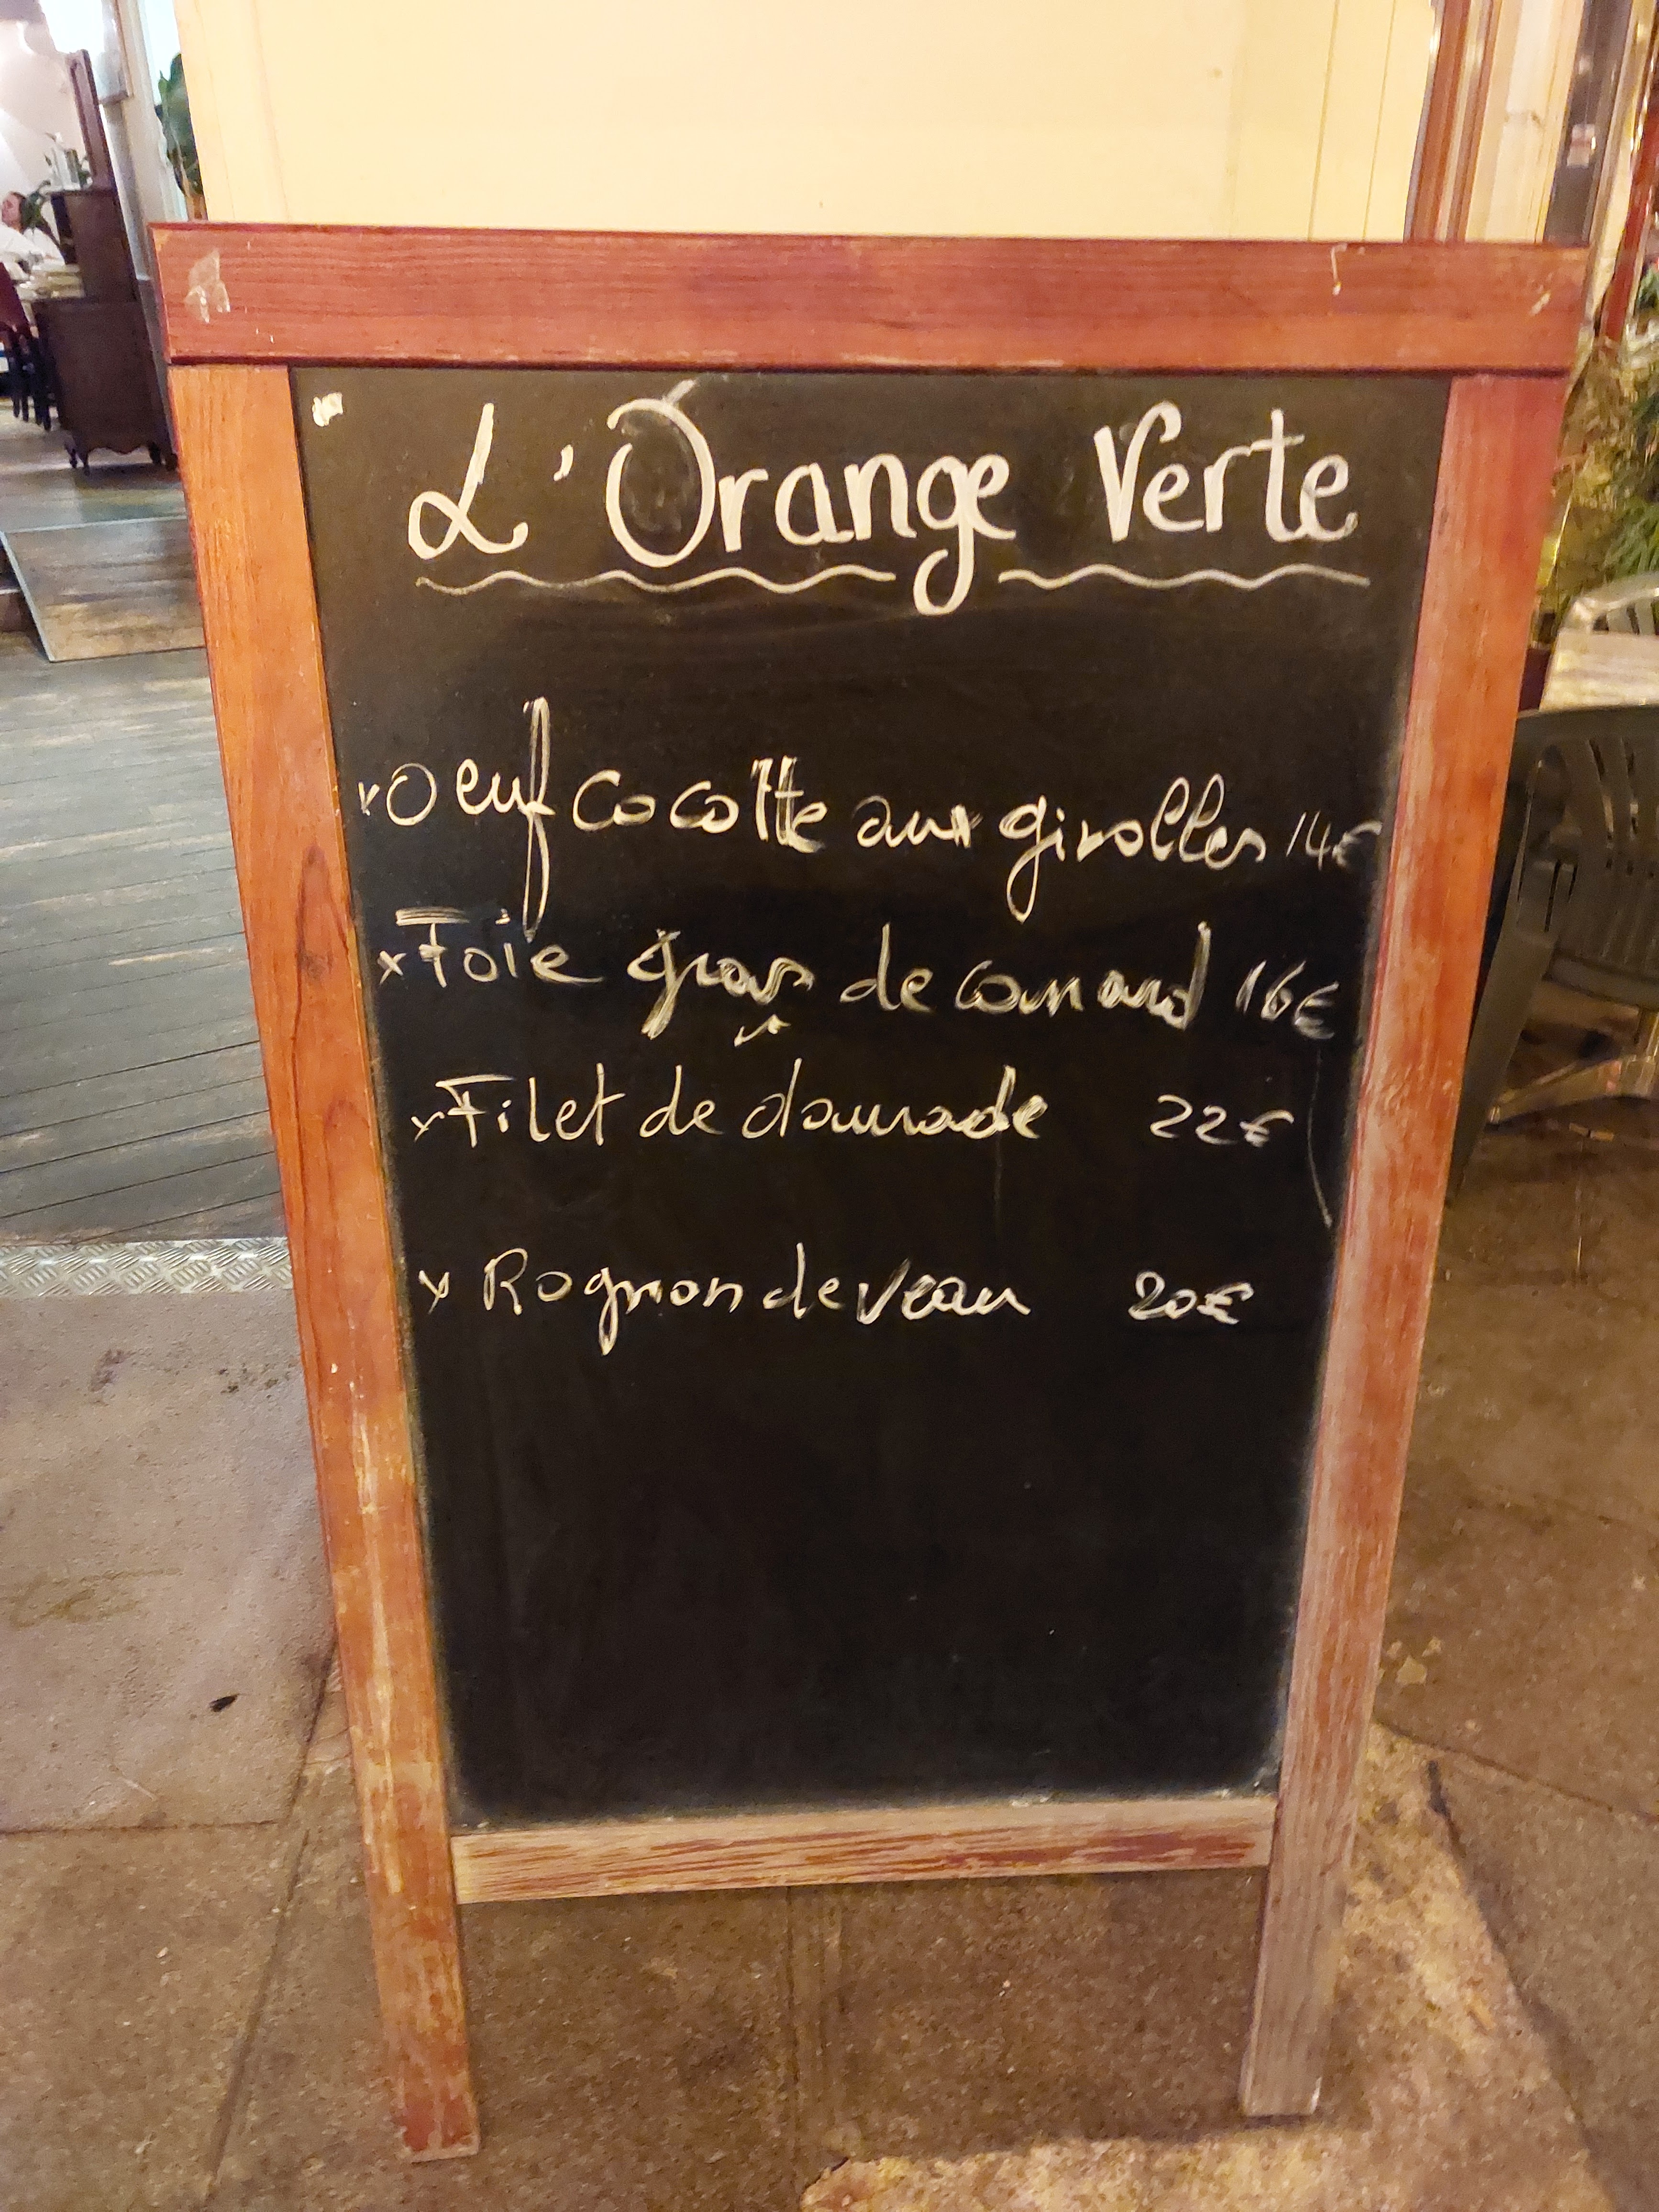 L'Orange Verte
x Oeuf cocotte aux girolles 14€
x Foie gras de canard 16€
x Filet de daurade 22€
x Rognon de veau 20€